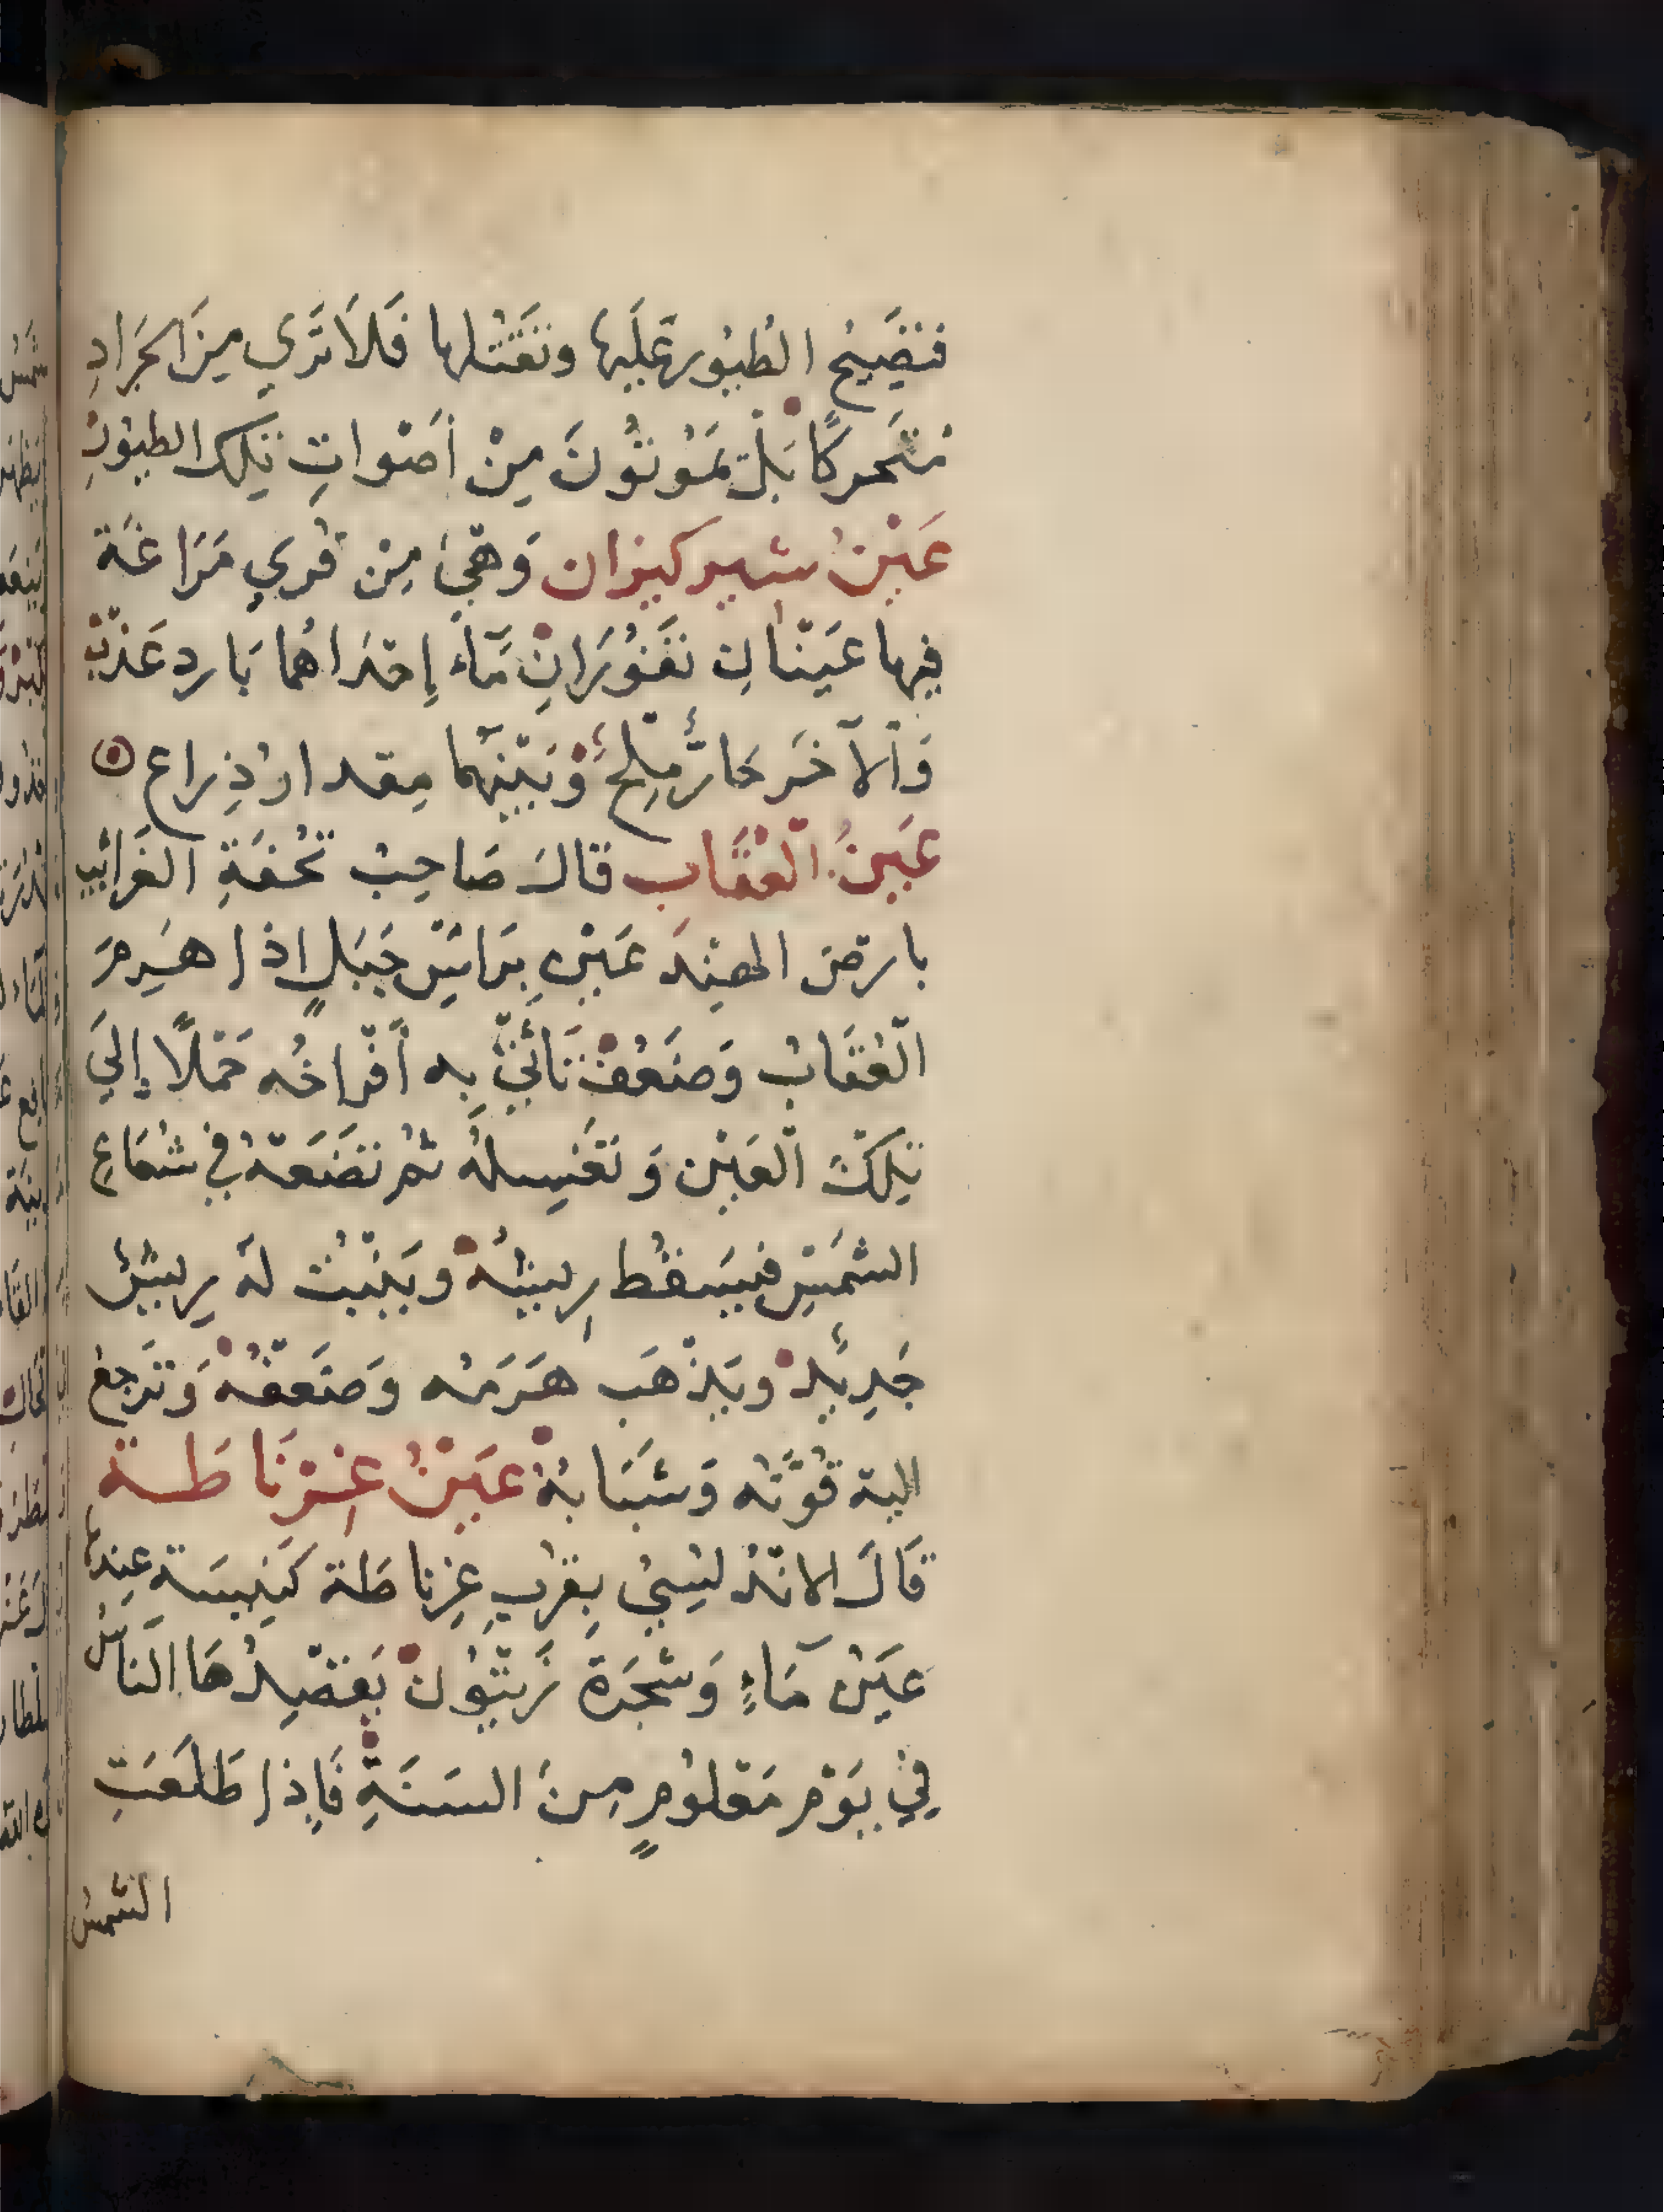 فتصيح الطيور عليها وتقتلها فلا تري من الجراد
متحركا بل يموتون من أصوات تلك الطيور
عين شيركيزان وهي من قري مراغة
فيها عينان تفوران ماء إحداهما بارد عذب
والآخر حار ملح وبينهما مقدار ذراع
عين العقاب قال صاحب تحفة الغرائب
بارض الهند عين براس جبل اذا هرم
العقاب وضعف تأتي به أفراخه حملا إلي
تلك العين وتغسله ثم تضعه في شعاع
الشمس فيسقط ريشه وينبت له ريش
جديد ويذهب هرمه وضعفه وترجع
اليه قوته وشبابه عين غرناطة
قال الاندلسي بقرب غرناطة كنيسة عندها
عين ماء وشجرة زيتون يقصدها الناس
في يوم معلوم من السنة فإذا طلعت
الشمس